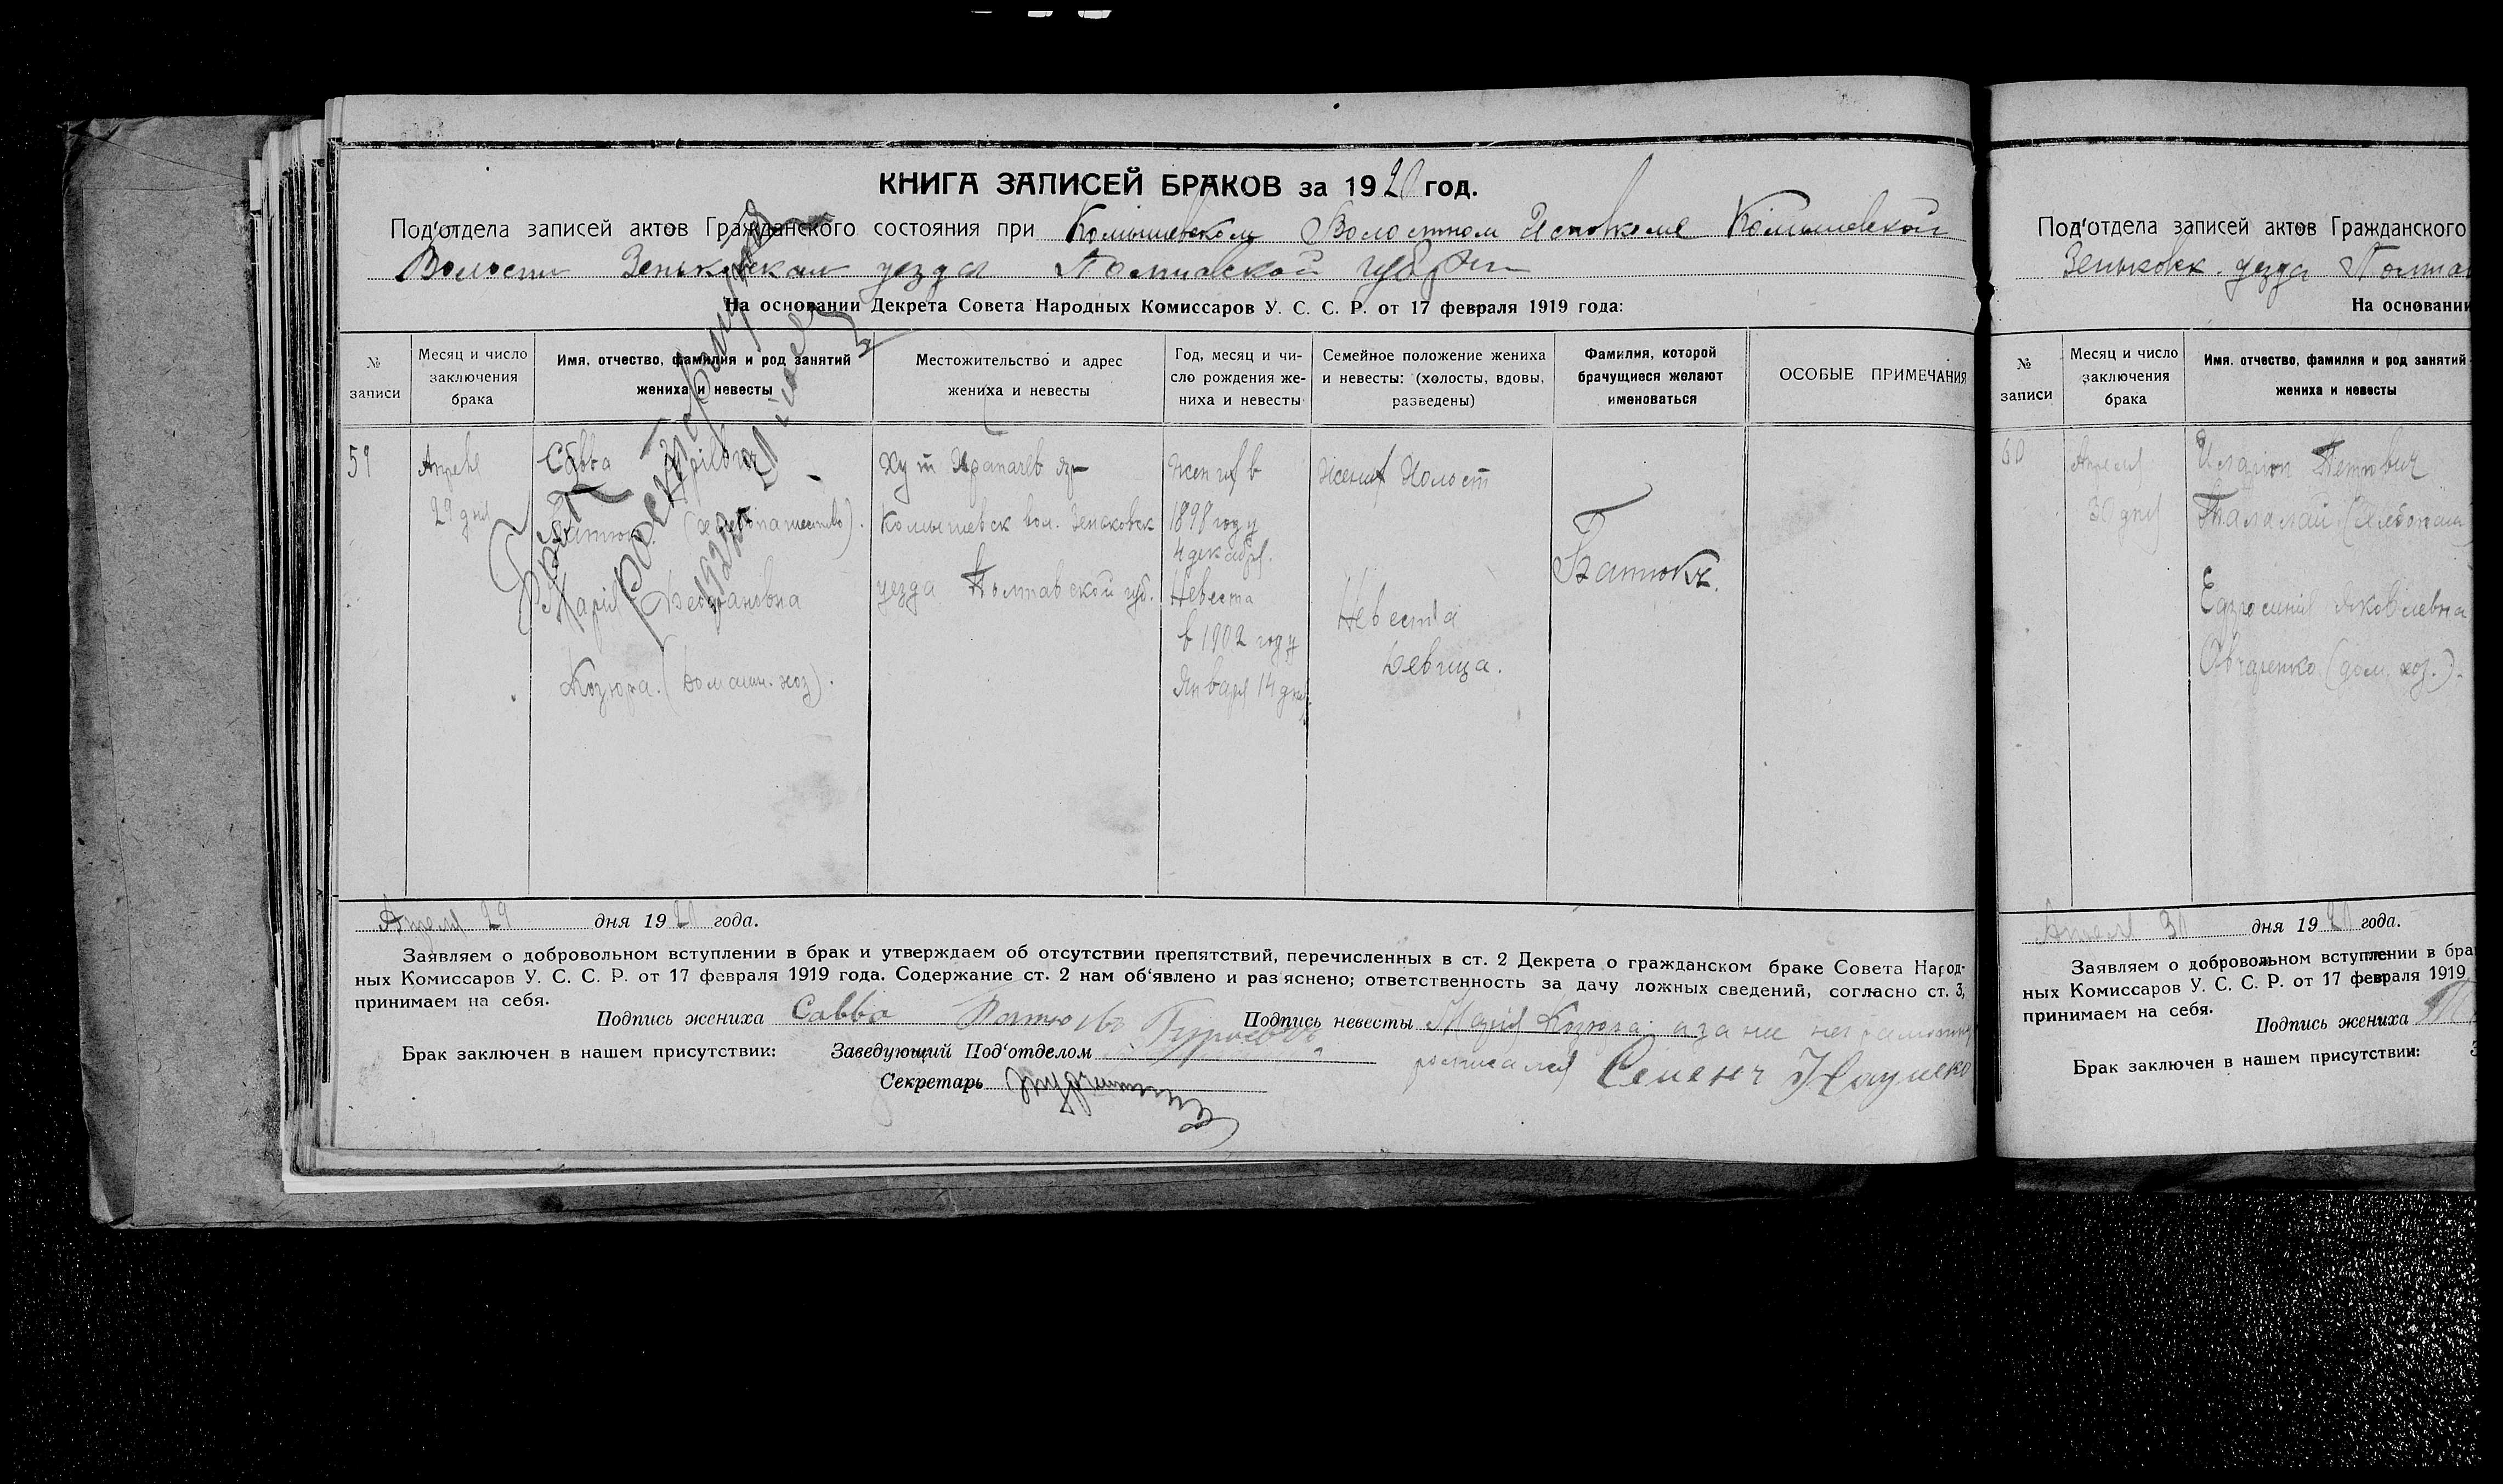 КНИГА ЗАПИСЕЙ БРАКОВ за 1920 год.
Под'отдела записей актов Гражданского состояния при Комышевском Волостном Исполкоме Комышевской
Волости Зеньковскаго уезда Полтавской губернии
На основании Декрета Совета Народных Комиссаров У. С. С. Р. от 17 февраля 1919 года:
№ записи
Месяц и число заключения брака
Имя, отчество, фамилия и род занятий жениха и невесты
Местожительство и адрес жениха и невесты
Год, месяц и число рождения жениха и невесты
Семейное положение жениха и невесты: (холосты, вдовы, разведены)
Фамилия, которой брачущиеся желают именоваться
ОСОБЫЕ ПРИМЕЧАНИЯ
59
Апреля
29 дня
Савва
Батюк (хлебопашество).
Марія
Козюра. (домашн. хоз).
Брак
1922 р. 21
Хут
Комышевск вол. Зеньковск
уезда Полтавской губ.
Жених в
1898 году
4 декабря.
Невеста
в 1902 году
Января 14 дня
Жених Холост
Невеста
Девица.
Батюкъ.
Апреля 29 дня 1920 года.
Заявляем о добровольном вступлении в брак и утверждаем об отсутствии препятствий, перечисленных в ст. 2 Декрета о гражданском браке Совета Народ-
ных Комиссаров У. С. С. Р. от 17 февраля 1919 года. Содержание ст. 2 нам об'явлено и раз'яснено; ответственность за дачу ложных сведений, согласно ст. 3,
принимаем на себя.
Подпись жениха Савва Батюкъ Подпись невесты Марія Козюра а за не
Брак заключен в нашем присутствии: Заведующий Под'отделом
росписался Семенъ Науменко
Секретарь
Под'отдела записей актов Гражданского
Зеньковск. уезда Полтав
На основании
№ записи
Месяц и число заключения брака
Имя, отчество, фамилия и род занятий
жениха и невесты
60
Апреля
30 дня
Иларіон Петрович
Талалай (хлебопаш
Яковлевна
Овчаренко (дом. хоз.).
Апреля 30 дня 1920 года.
Заявляем о добровольном вступлении в бра
ных Комиссаров У. С. С. Р. от 17 февраля 1919
принимаем на себя.
Подпись жениха
Брак заключен в нашем присутствии: